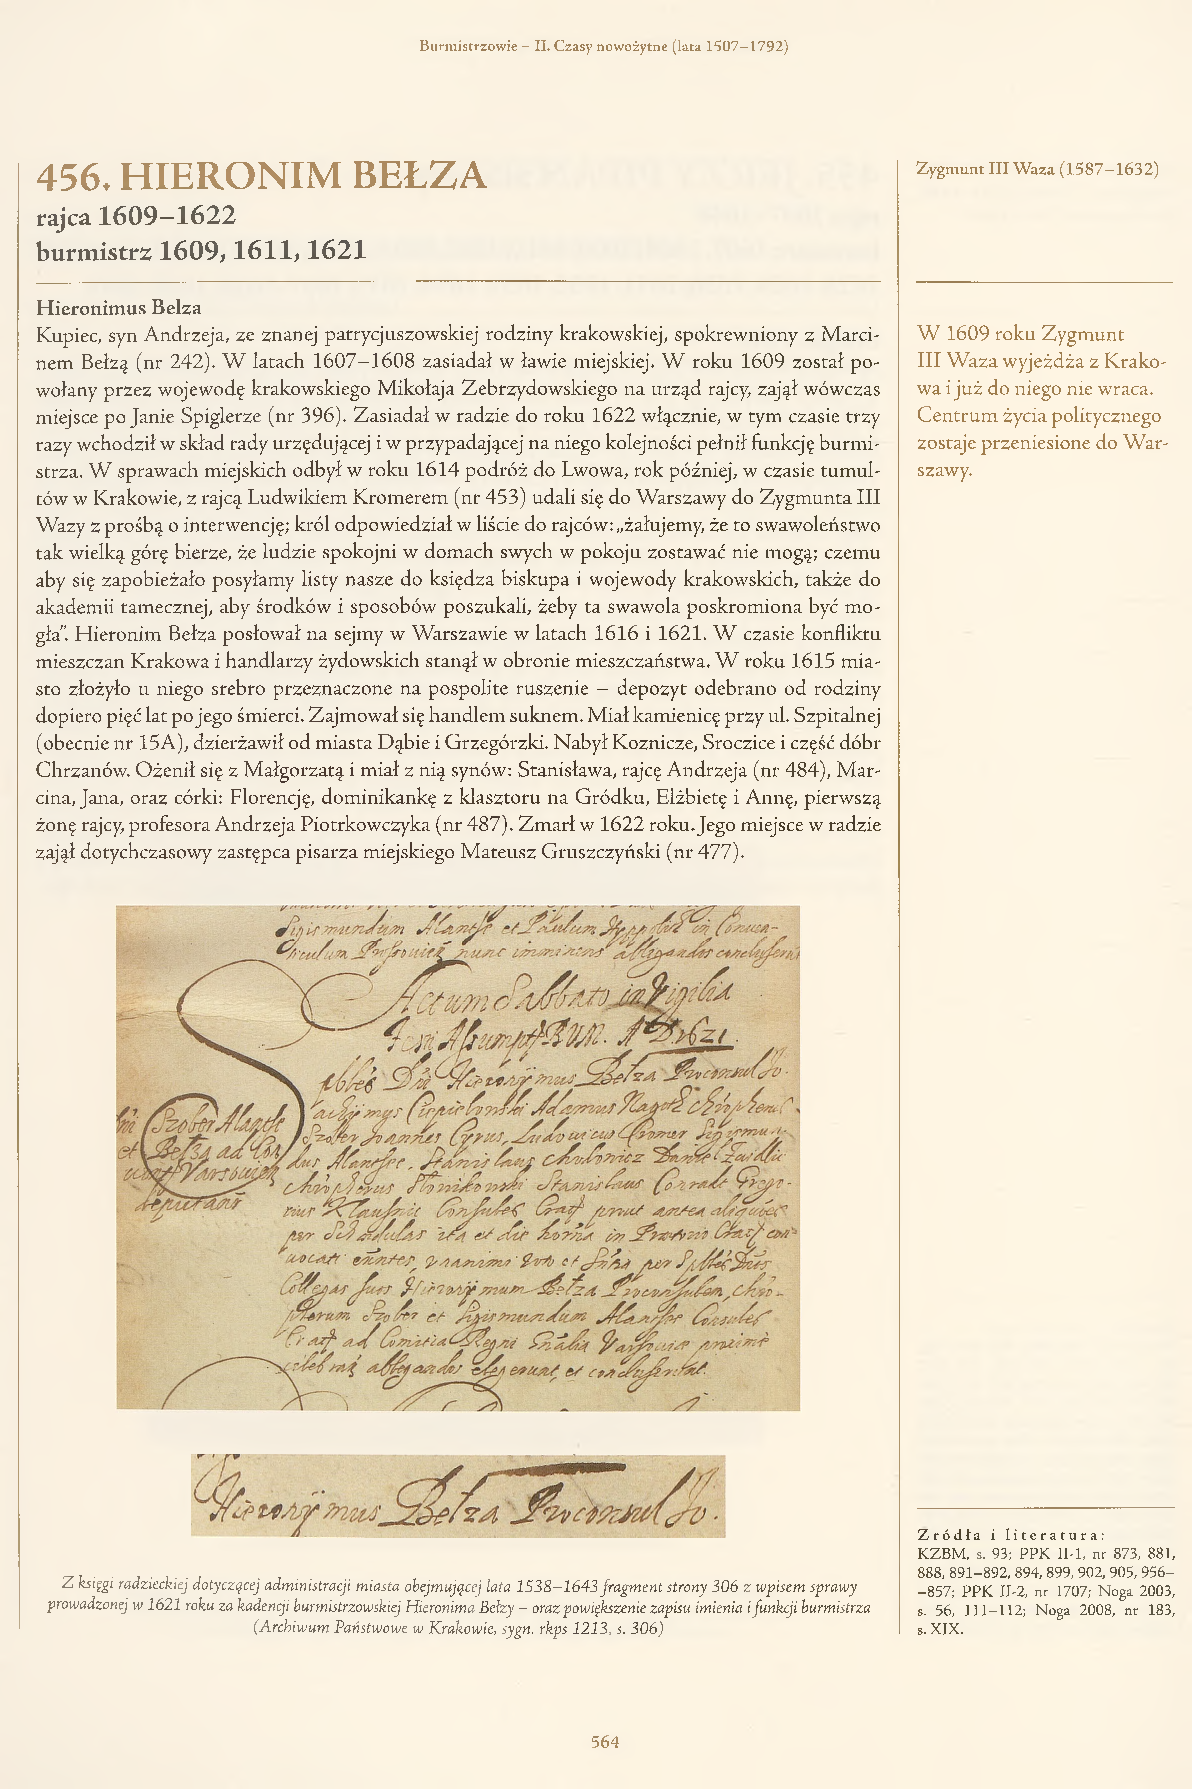 Burmistrzowie – II. Czasy nowożytne (lata 1507–1792)
456. HIERONIM BEŁZA
rajca 1609–1622
burmistrz 1609, 1611, 1621
Hieronimus Belza
Kupiec, syn Andrzeja, ze znanej patrycjuszowskiej rodziny krakowskiej, spokrewniony z Marci-
nem Bełzą (nr 242). W latach 1607–1608 zasiadał w ławie miejskiej. W roku 1609 został po-
wołany przez wojewodę krakowskiego Mikołaja Zebrzydowskiego na urząd rajcy, zajął wówczas
miejsce po Janie Spiglerze (nr 396). Zasiadał w radzie do roku 1622 włącznie, w tym czasie trzy
razy wchodził w skład rady urzędującej i w przypadającej na niego kolejności pełnił funkcję burmi-
strza. W sprawach miejskich odbył w roku 1614 podróż do Lwowa, rok później, w czasie tumul-
tów w Krakowie, z rajcą Ludwikiem Kromerem (nr 453) udali się do Warszawy do Zygmunta III
Wazy z prośbą o interwencję; król odpowiedział w liście do rajców: „żałujemy, że to swawoleństwo
tak wielką górę bierze, że ludzie spokojni w domach swych w pokoju zostawać nie mogą; czemu
aby się zapobieżało posyłamy listy nasze do księdza biskupa i wojewody krakowskich, także do
akademii tamecznej, aby środków i sposobów poszukali, żeby ta swawola poskromiona być mo-
gła”. Hieronim Bełza posłował na sejmy w Warszawie w latach 1616 i 1621. W czasie konfliktu
mieszczan Krakowa i handlarzy żydowskich stanął w obronie mieszczaństwa. W roku 1615 mia-
sto złożyło u niego srebro przeznaczone na pospolite ruszenie – depozyt odebrano od rodziny
dopiero pięć lat po jego śmierci. Zajmował się handlem suknem. Miał kamienicę przy ul. Szpitalnej
(obecnie nr 15A), dzierżawił od miasta Dąbie i Grzegórzki. Nabył Koznicze, Sroczice i część dóbr
Chrzanów. Ożenił się z Małgorzatą i miał z nią synów: Stanisława, rajcę Andrzeja (nr 484), Mar-
cina, Jana, oraz córki: Florencję, dominikankę z klasztoru na Gródku, Elżbietę i Annę, pierwszą
żonę rajcy, profesora Andrzeja Piotrkowczyka (nr 487). Zmarł w 1622 roku. Jego miejsce w radzie
zajął dotychczasowy zastępca pisarza miejskiego Mateusz Gruszczyński (nr 477).
Zygmunt III Waza (1587–1632)
W 1609 roku Zygmunt
III Waza wyjeżdża z Krako-
wa i już do niego nie wraca.
Centrum życia politycznego
zostaje przeniesione do War-
szawy.
Sigismundum Alantse et Paulum
nunc imminens ablegandos concluserunt
Actum Sabbato in Vigilia
Festi Assumpt. BVM. A D 1621.
Hieronÿmus Bełza Proconsul Jo-
achÿmus Ciepielowski Adamus
Szober Joannes Cyrus, Ludovicus Cromer Sigismun-
dus Alantsee, Stanislaus Daniel
Stanislaus Conradt Grego-
rius Consules prout antea
per Schedulas ita et die in Praetorio
unanimi per
Collegas suos Hieronÿmum Bełza Proconsulem, Chris-
Szober et Sigismundum Alantsee Consules
ad Comitia Regni
ablegandos elegerunt et concluserunt.
Szober Alantse
et Bełza ad
deputati
Hieronÿmus Bełza Proconsul Jo.
Z księgi radzieckiej dotyczącej administracji miasta obejmującej lata 1538–1643 fragment strony 306 z wpisem sprawy
prowadzonej w 1621 roku za kadencji burmistrzowskiej Hieronima Bełzy – oraz powiększenie zapisu imienia i funkcji burmistrza
(Archiwum Państwowe w Krakowie, sygn. rkps 1213, s. 306)
Źródła i literatura:
KZBM, s. 93; PPK II-1, nr 873, 881,
888, 891–892, 894, 899, 902, 905, 956–
–857; PPK II-2, nr 1707; Noga 2003,
s. 56, 111–112; Noga 2008, nr 183,
s. XIX.
564